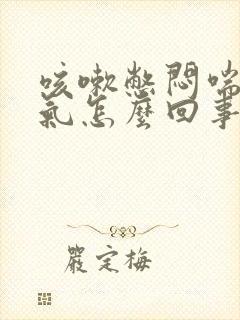 咳嗽憋悶喘
氣怎麼回事
嚴定梅